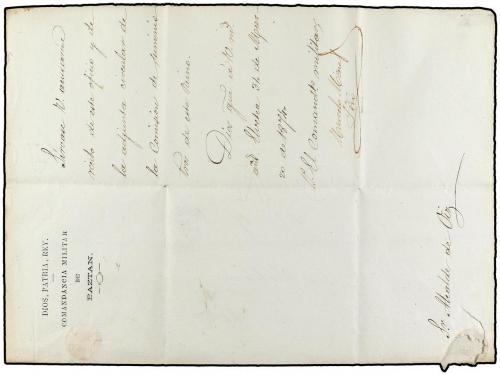 DIOS, PATRIA, REY.
COMANDANCIA MILITAR
DE
BAZTAN.
Sirvase V. acusarme
recibo de este oficio y de
la adjunta circular de
la Comision de suminis
tros de este Reino.
Dios gue á V. m. a.
Elvetea 31 de Agos
to de 1874
El Comandte militar
Sr Alcalde de